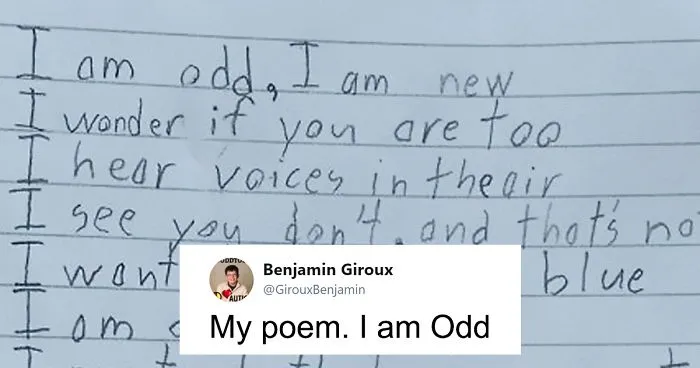 I am odd, I am new
I wonder if you are too
I hear voices in the air
I see you don't, and that's no
I want blue
I am
Benjamin Giroux
@GirouxBenjamin
My poem. I am Odd